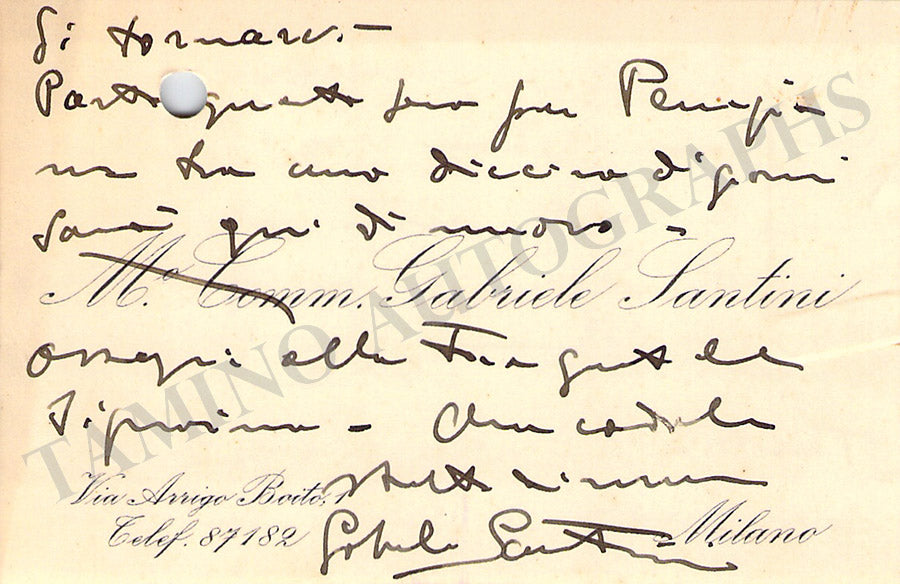 di tornare. –
Parto questa sera per Perugia
ma tra una diecina di giorni
sarò qui di nuovo –
Mº. Comm. Gabriele Santini
ossequi alla Sua gentile
Signora – Una cordiale
stretta di mano
Via Arrigo Boito, 1
Telef. 87182
Milano
Gabriele Santini
TAMINO AUTOGRAPHS